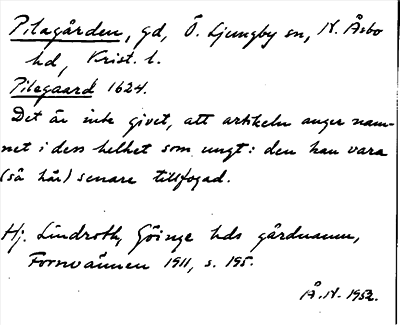 Pilagården, gd, Ö. Ljungby sn, N. Åsbo
hd, Krist. l.
Pilegaard 1624.
Det är inte givet, att artikeln anger nam-
net i dess helhet som ungt: den kan vara
(så här) senare tillfogad.
Hj. Lindroth, Göinge hds gårdnamn,
Fornvännen 1911, s. 195.
Å.H. 1952.